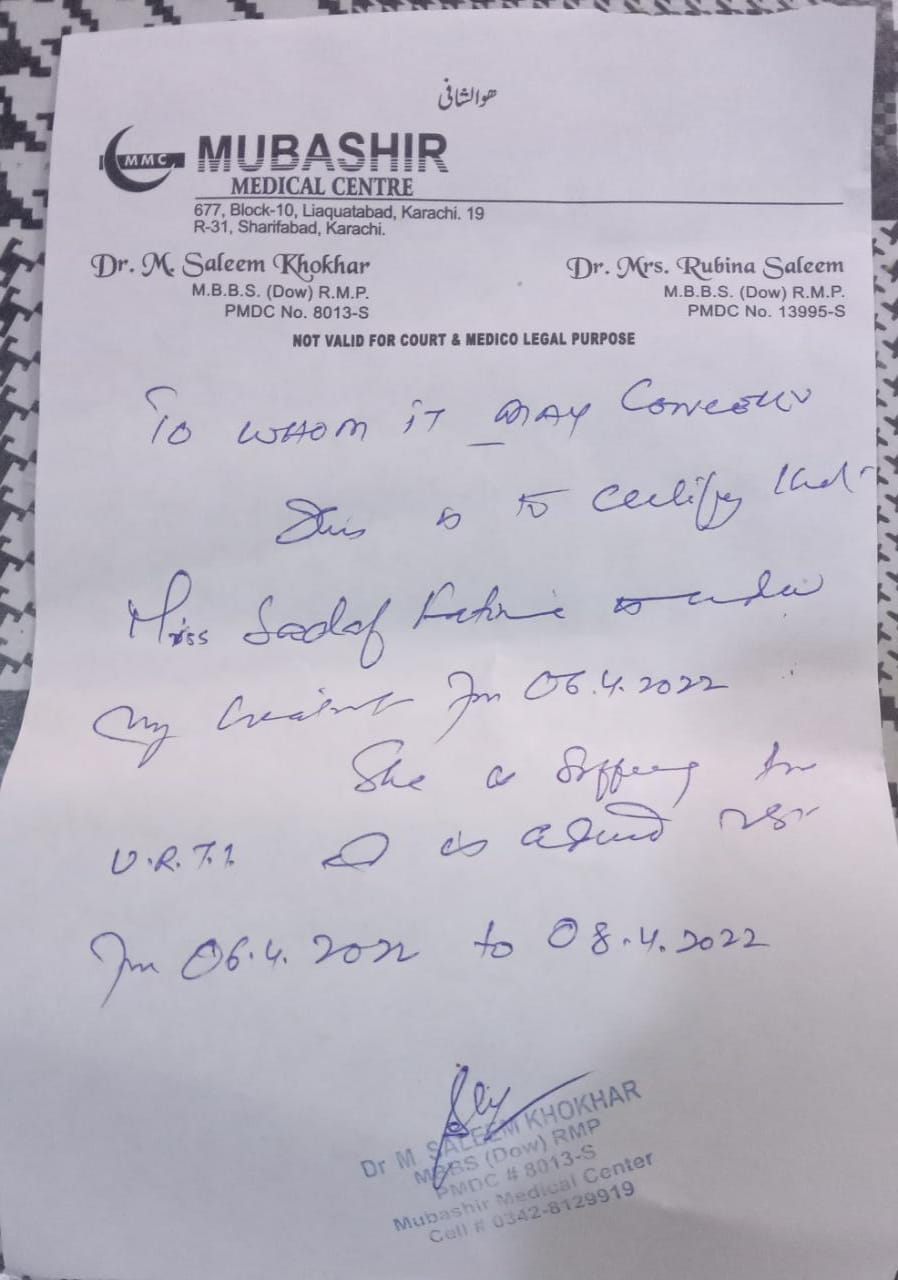 هوالشافی
MMC MUBASHIR
MEDICAL CENTRE
677, Block-10, Liaquatabad, Karachi. 19
R-31, Sharifabad, Karachi.
Dr. M. Saleem Khokhar
M.B.B.S. (Dow) R.M.P.
PMDC No. 8013-S
Dr. Mrs. Rubina Saleem
M.B.B.S. (Dow) R.M.P.
PMDC No. 13995-S
NOT VALID FOR COURT & MEDICO LEGAL PURPOSE
To WHOM iT MAY CONCERN
This is to Certify that
Miss Sadaf is under
my treatment from 06.4.2022
She is Suffering from
U.R.T.I. is advised rest
from 06.4.2022 to 08.4.2022
Dr M. SALEEM KHOKHAR
MBBS (Dow) RMP
PMDC # 8013-S
Mubashir Medical Center
Cell # 0342-8129919